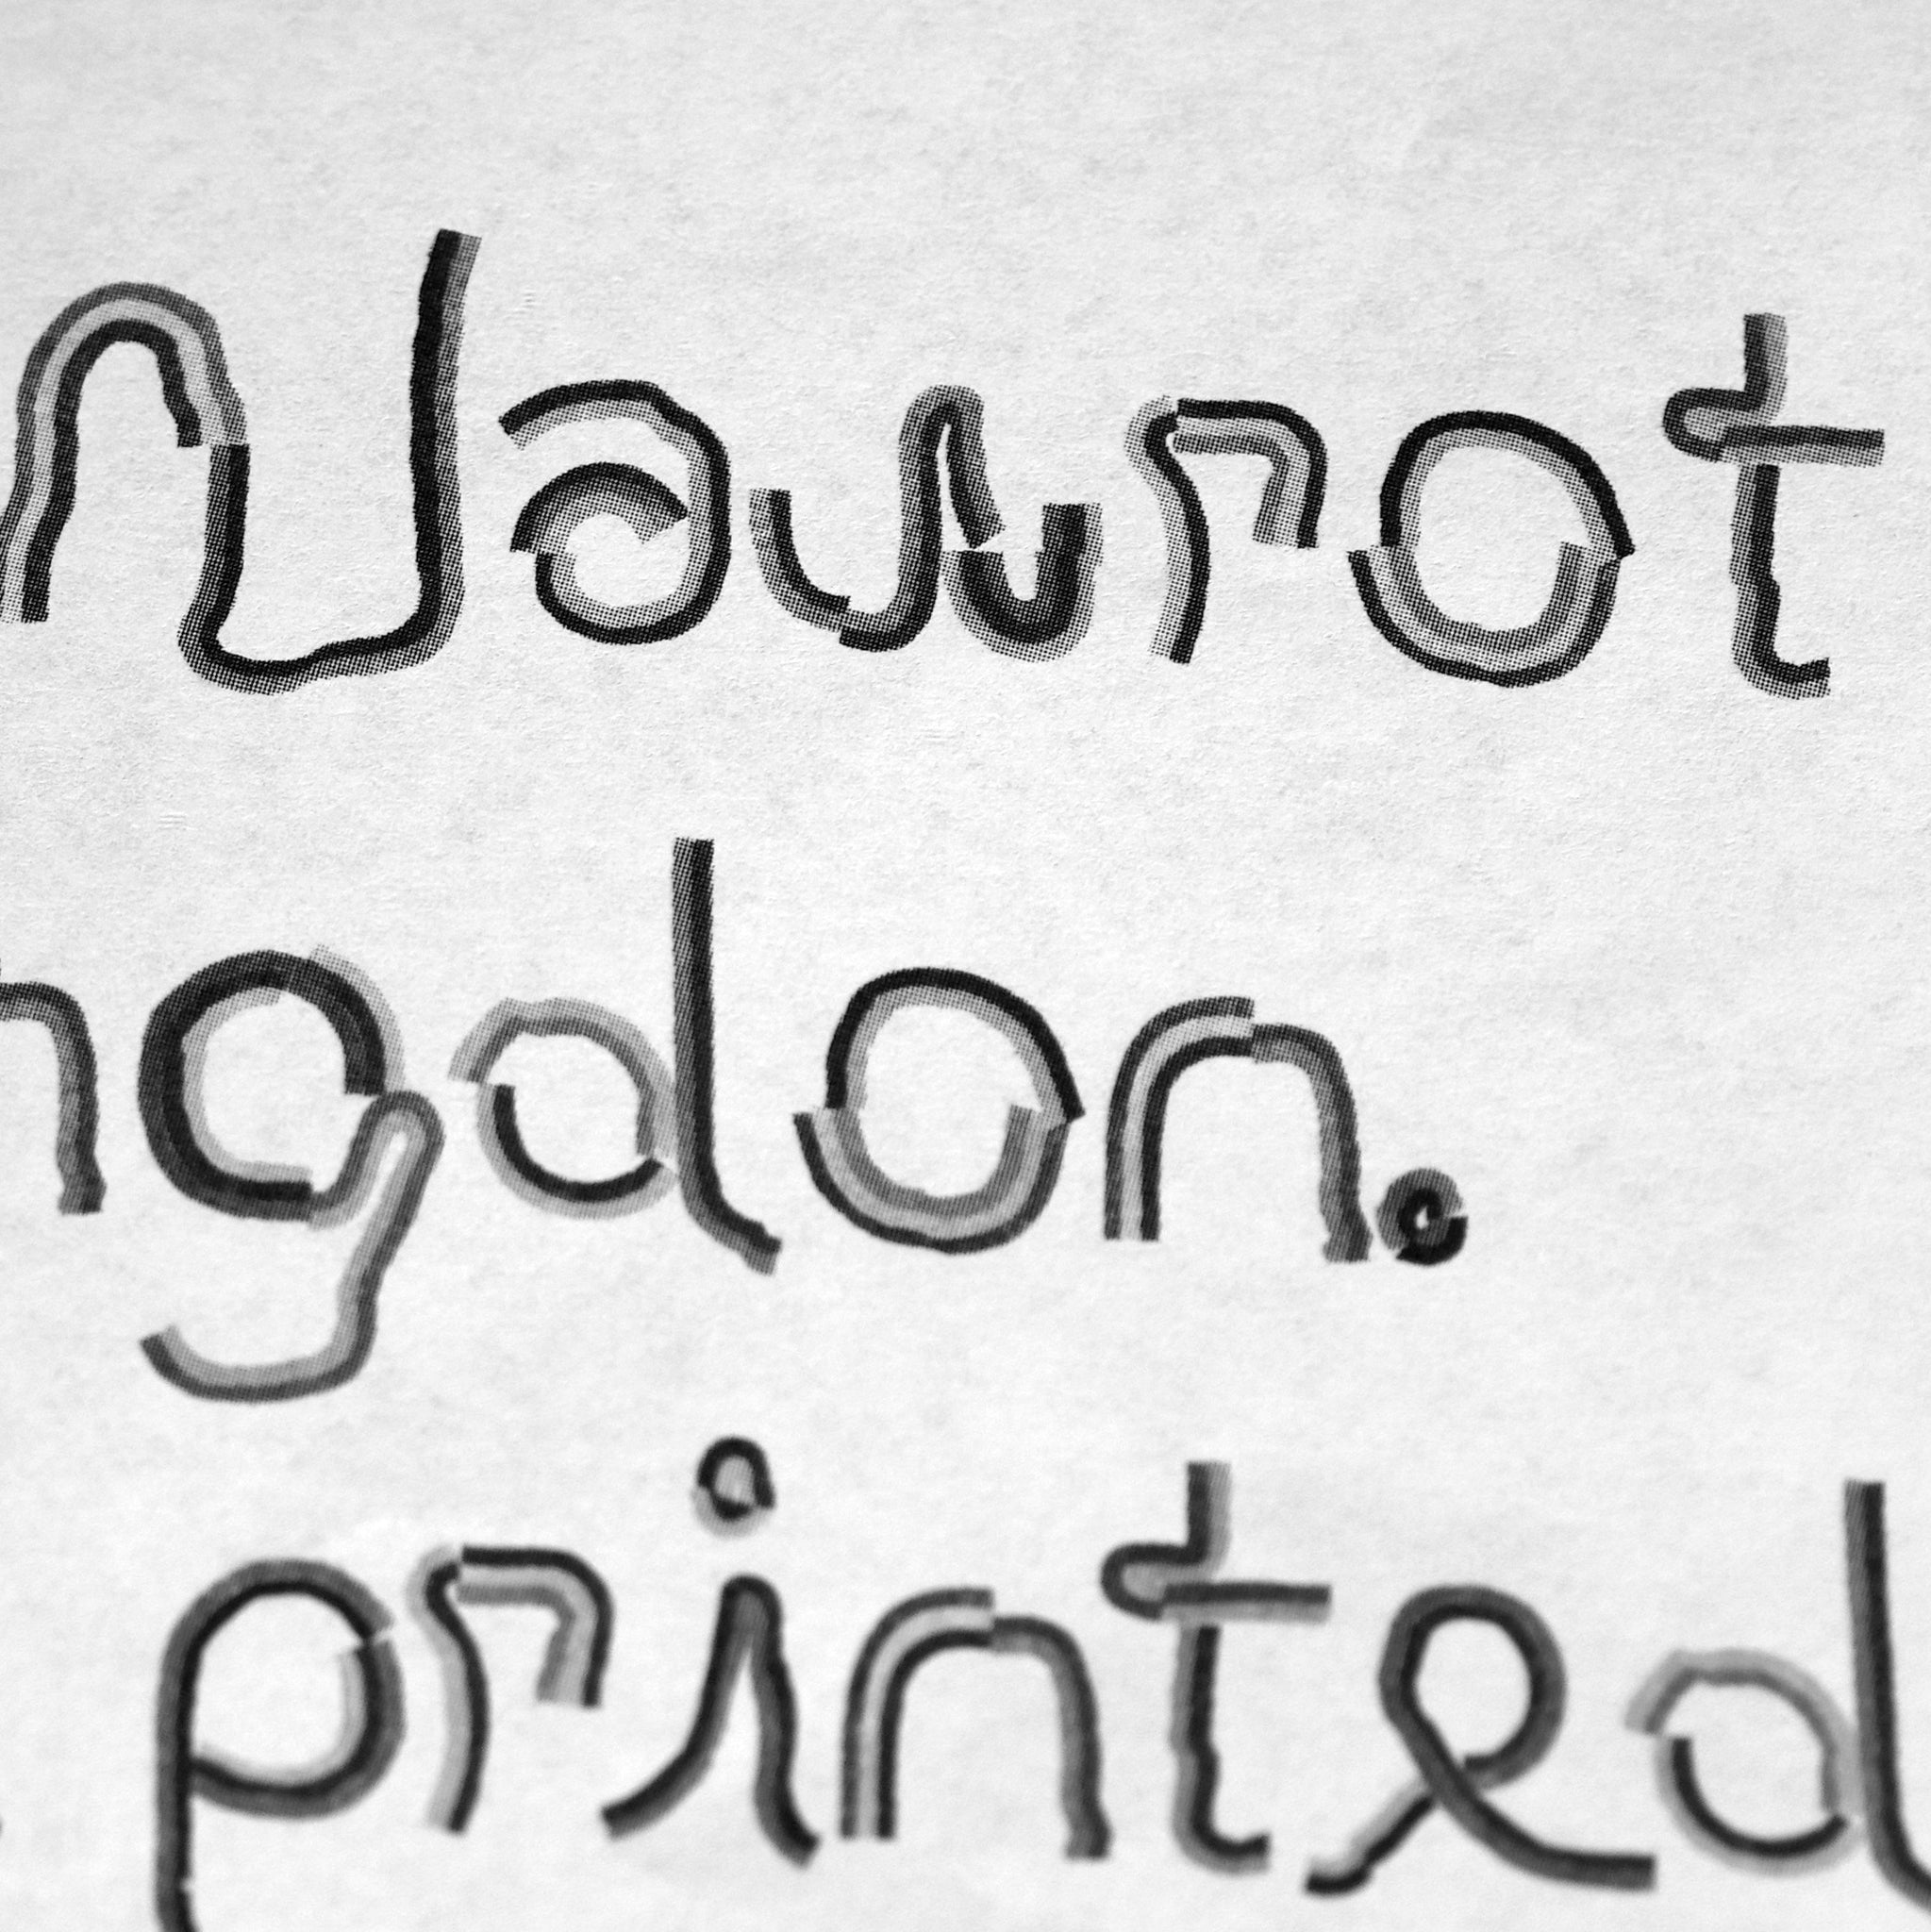 Nawrot
ngdon.
printed